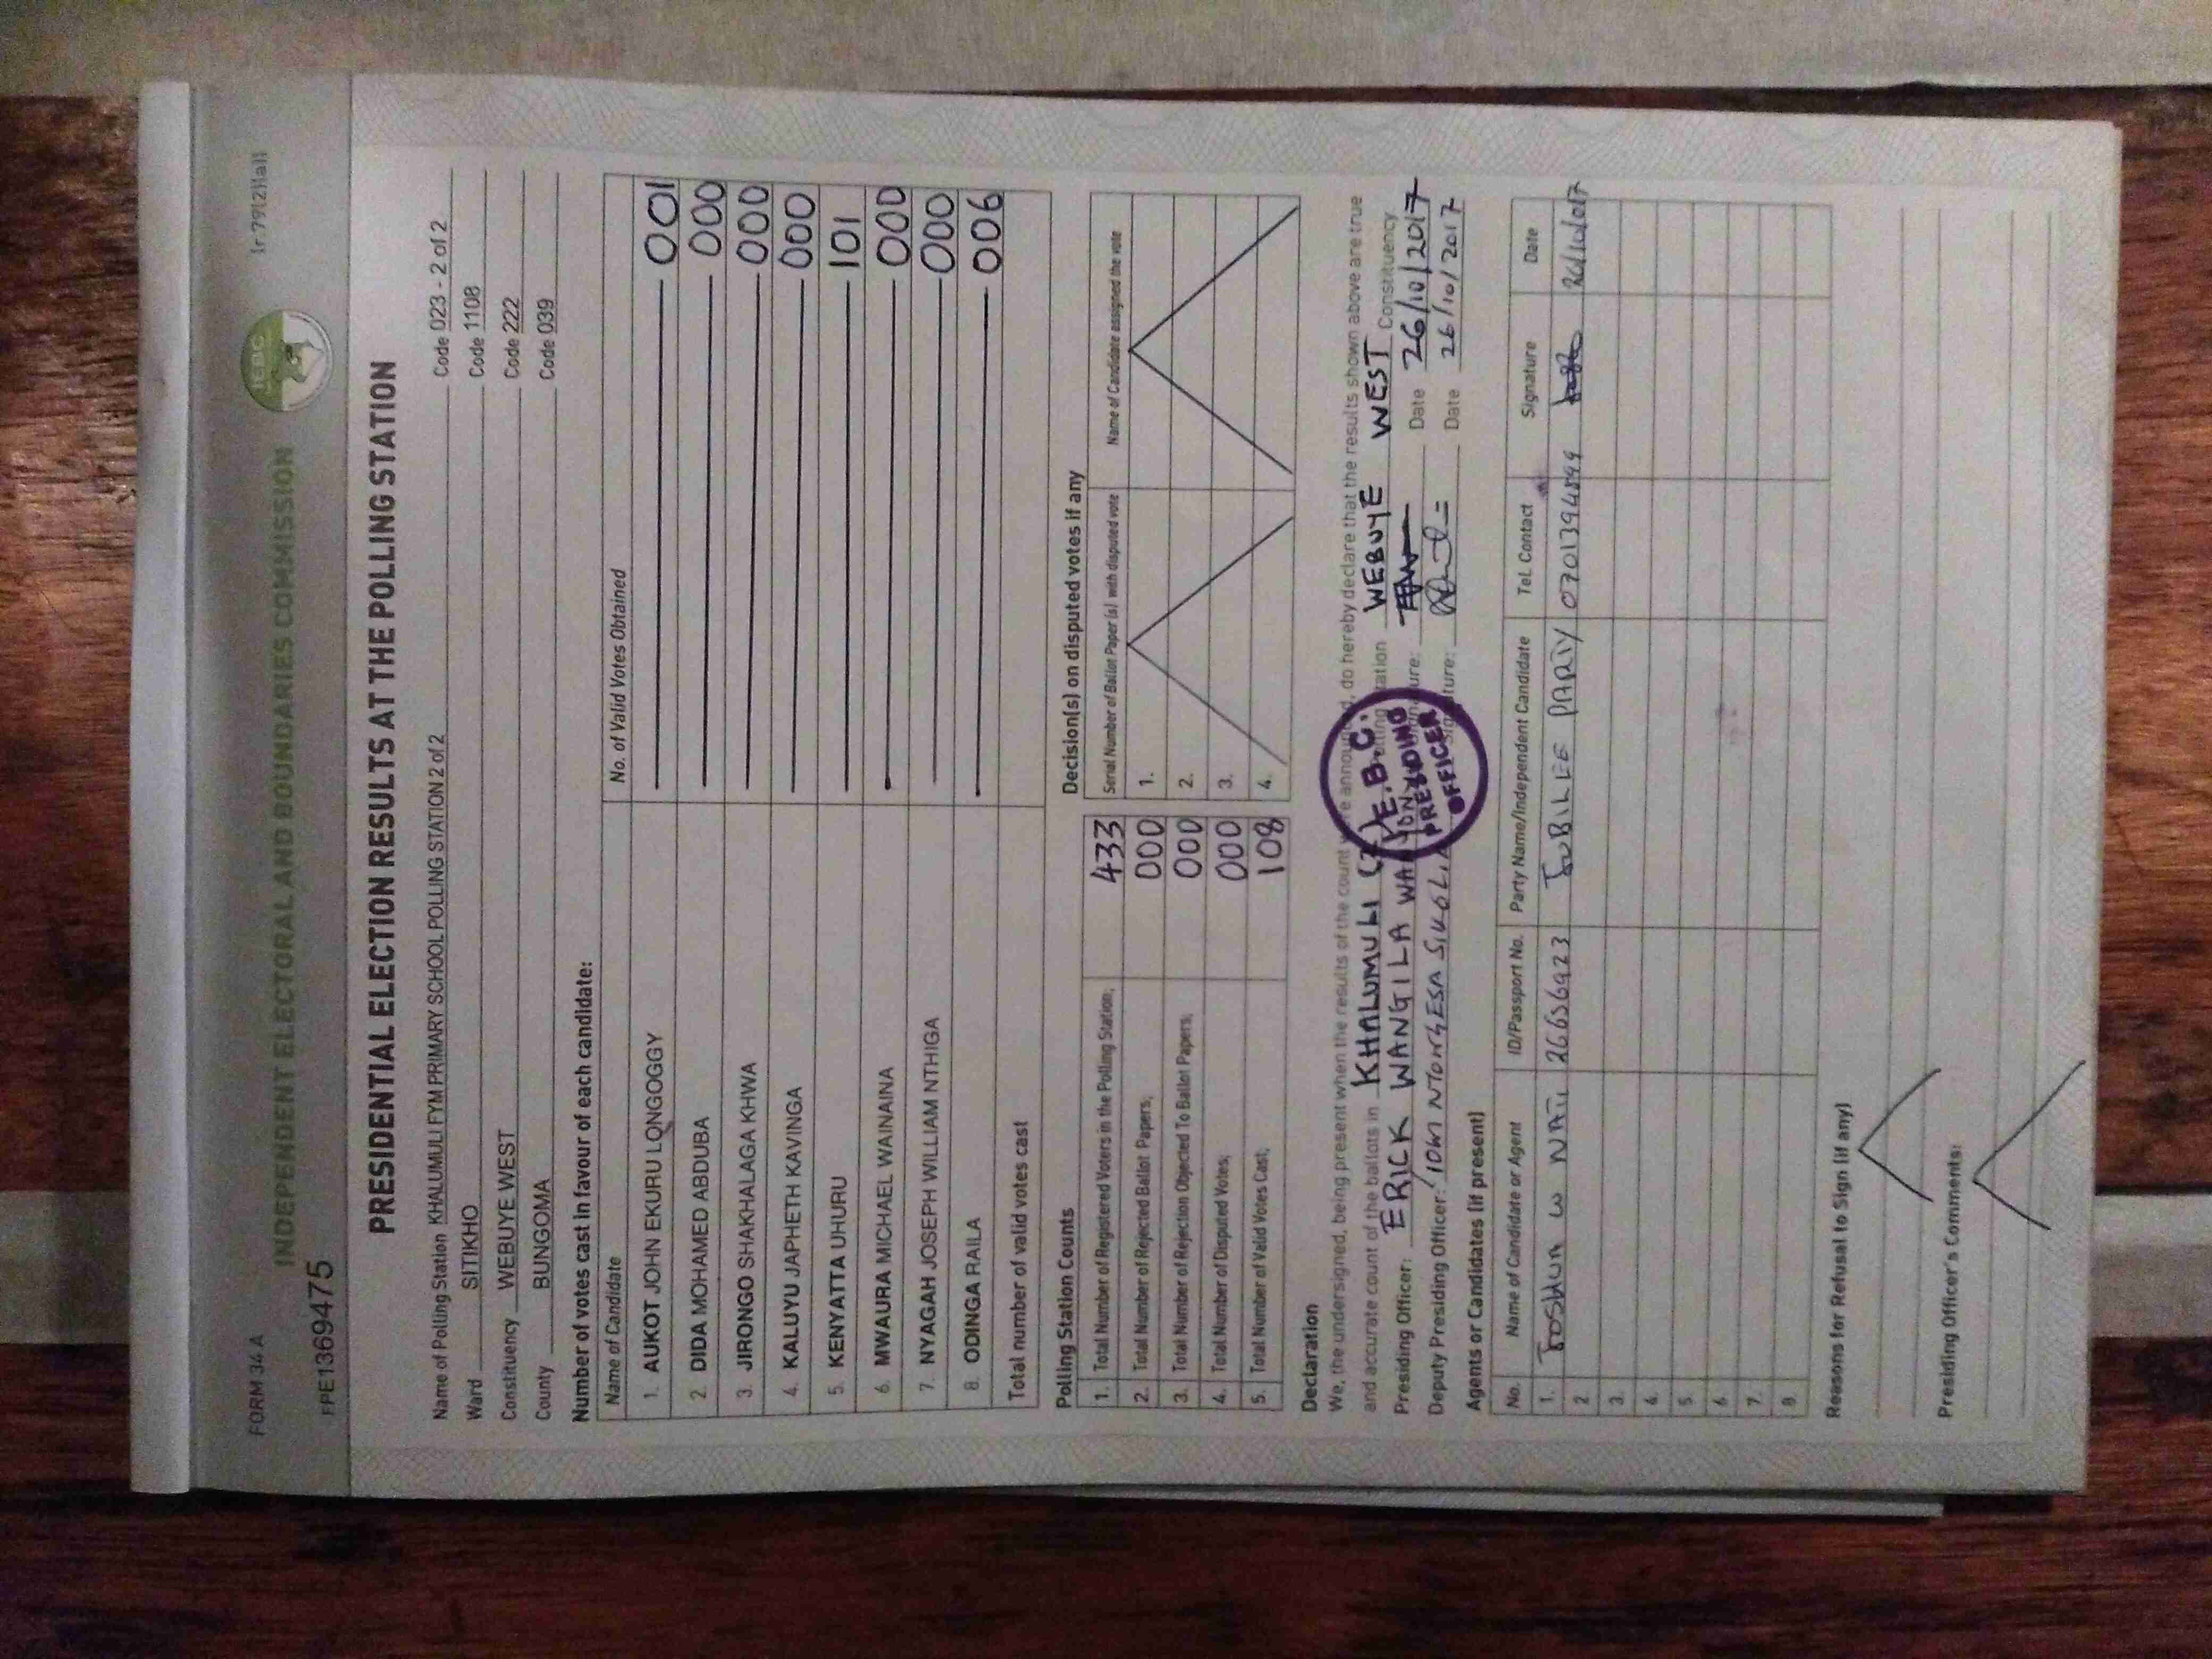 FORM 34 A
(r.79(2)(a))
IEBC
INDEPENDENT ELECTORAL AND BOUNDARIES COMMISSION
FPE1369475
PRESIDENTIAL ELECTION RESULTS AT THE POLLING STATION
Name of Polling Station KHALUMULI FYM PRIMARY SCHOOL POLLING STATION 2 of 2 Code 023 - 2 of 2
Ward SITIKHO Code 1108
Constituency WEBUYE WEST Code 222
County BUNGOMA Code 039
Number of votes cast in favour of each candidate:
Name of Candidate No. of Valid Votes Obtained
1. AUKOT JOHN EKURU LONGOGGY 001
2. DIDA MOHAMED ABDUBA 000
3. JIRONGO SHAKHALAGA KHWA 000
4. KALUYU JAPHETH KAVINGA 000
5. KENYATTA UHURU 101
6. MWAURA MICHAEL WAINAINA 000
7. NYAGAH JOSEPH WILLIAM NTHIGA 000
8. ODINGA RAILA 006
Total number of valid votes cast
Polling Station Counts
1. Total Number of Registered Voters in the Polling Station; 433
2. Total Number of Rejected Ballot Papers; 000
3. Total Number of Rejection Objected To Ballot Papers; 000
4. Total Number of Disputed Votes; 000
5. Total Number of Valid Votes Cast; 108
Decision(s) on disputed votes if any
Serial Number of Ballot Paper (s) with disputed vote Name of Candidate assigned the vote
1.
2.
3.
4.
Declaration
We, the undersigned, being present when the results of the count were announced, do hereby declare that the results shown above are true
and accurate count of the ballots in KHALUMULI (2) Polling Station WEBUYE WEST Constituency
Presiding Officer: ERICK WANGILA Signature: Date 26/10/2017
Deputy Presiding Officer: Signature: Date 26/10/2017
I.E.B.C.
PRESIDING
OFFICER
Agents or Candidates (if present)
No. Name of Candidate or Agent ID/Passport No. Party Name/Independent Candidate Tel. Contact Signature Date
1. JOSHUA W 26656923 JUBILEE PARTY 26/10/2017
2
3
4.
5
6
7.
8
Reasons for Refusal to Sign (if any)
Presiding Officer's Comments: